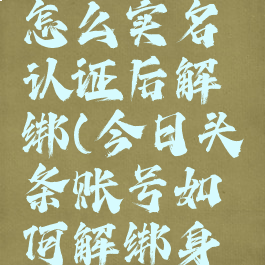 怎么实名
认证后解
绑(今日头
条帐号如
何解绑身